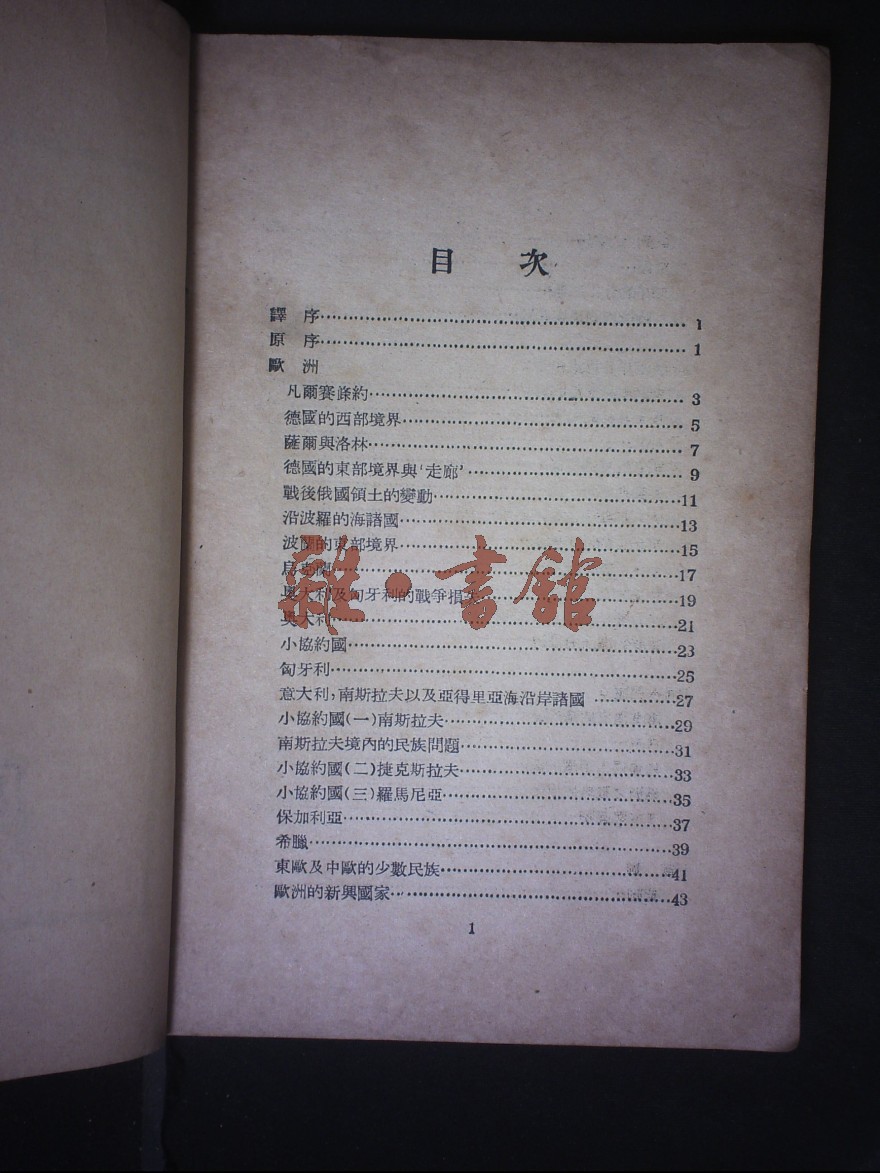 目 次
譯 序 1
原 序 1
歐 洲
凡爾賽條約 3
德國的西部境界 5
薩爾與洛林 7
德國的東部境界與‘走廊’ 9
戰後俄國領土的變動 11
沿波羅的海諸國 13
波蘭的東部境界 15
烏克蘭 17
奧大利及匈牙利的戰爭損失 19
奧大利 21
小協約國 23
匈牙利 25
意大利,南斯拉夫以及亞得里亞海沿岸諸國 27
小協約國(一)南斯拉夫 29
南斯拉夫境內的民族問題 31
小協約國(二)捷克斯拉夫 33
小協約國(三)羅馬尼亞 35
保加利亞 37
希臘 39
東歐及中歐的少數民族 41
歐洲的新興國家 43
1
雜·書館